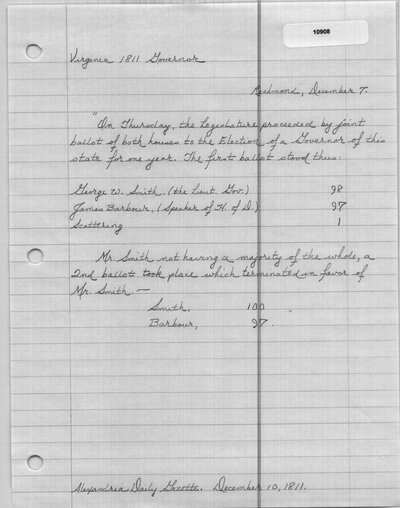 10908
Virginia 1811 Governor
Richmond, December 7.
"On Thursday, the Legislature proceeded by joint
ballot of both houses to the Election of a Governor of this
state for one year. The first ballot stood thus:
George W. Smith. (the Lieut. Gov.) 98
James Barbour, (Speaker of H. of D.) 97
Scattering 1
Mr. Smith not having a majority of the whole, a
2nd ballot took place which terminated in favor of
Mr. Smith.—
Smith, 100 "
Barbour, 97.
Alexandria Daily Gazette. December 10, 1811.